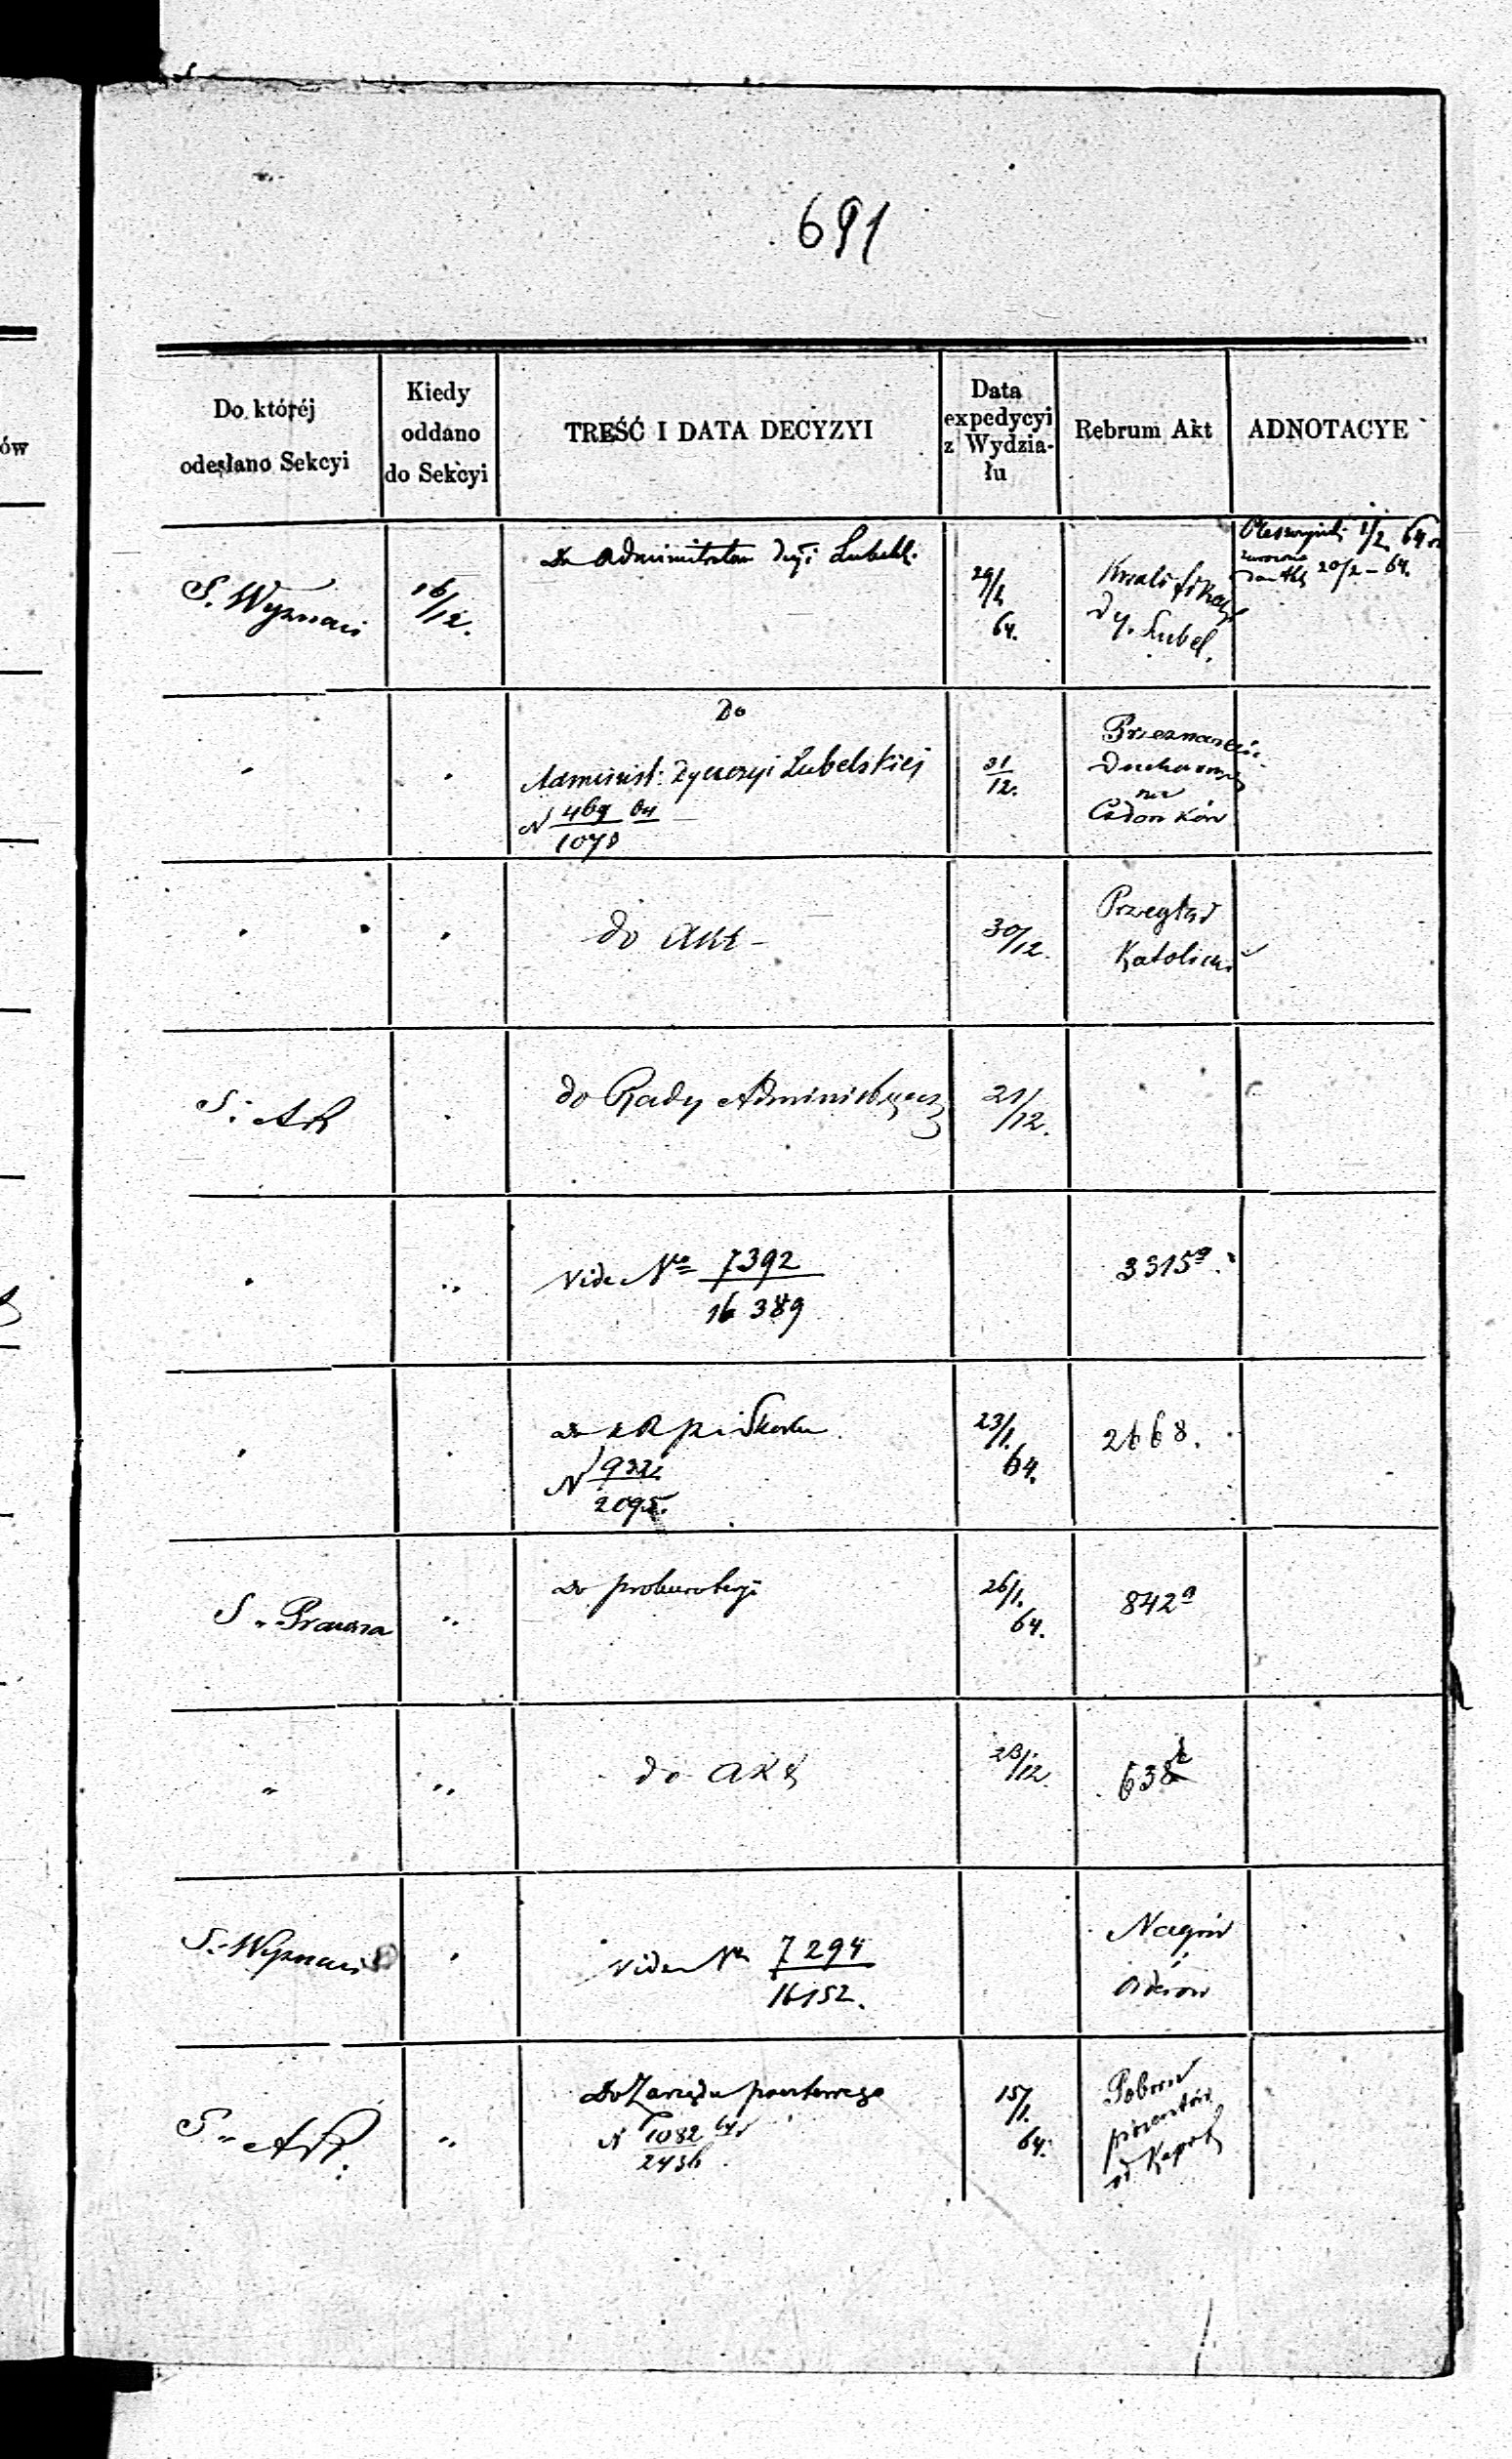 691
ów
Do któréj
odesłano Sekcyi
Kiedy
oddano
do Sekcyi
TREŚĆ I DATA DECYZYI
Data
expedycyi
z Wydzia-
łu
Rebrum Akt
ADNOTACYE
S. Wyznań
16/12.
Do Administratora Dyi Lubel.
29/
64.
Dy. Lubel.
1/2 64
20/2 - 64.
"
"
Do
Administ: Dyecezyi Lubelskiej
N 469 64
1078
31
12.
Duchowny
na
Członków
"
"
do Akt -
30/12.
Przegląd
Katolicki
S. AR
"
do Rady Administracy
21/12.
"
"
Vide No 7392
16389
3315a.
"
"
do KRPiSkarbu
N 932
2095.
23/1.
64.
2668.
S. Prawna
"
Do prokuratoryi
26/1.
64.
842a
"
"
do Akt
23/12
638
S. Wyznań
"
Vide No 7294
16152.
S. AR.
"
Do Zarządu pocztowego
N 1082 64
2436
15/1.
64.
Pobór
od